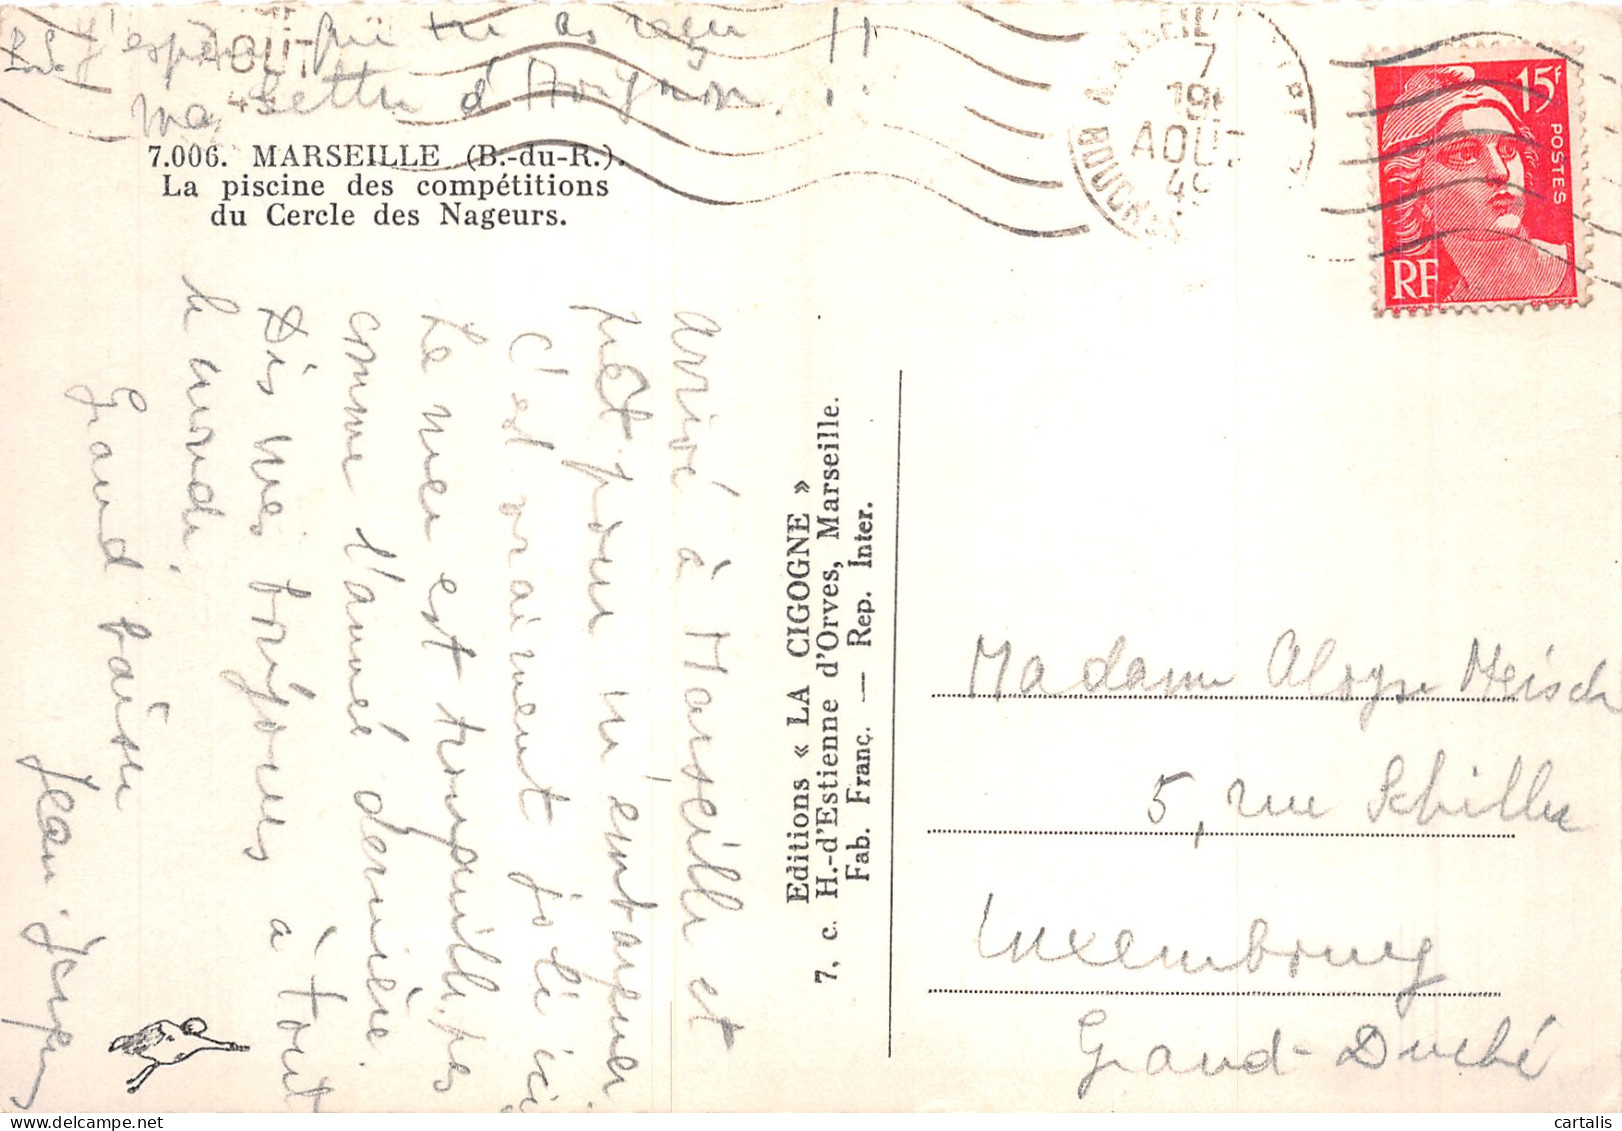 P.S. J'espère que tu as reçu
ma lettre d'Avignon. !!
7.006. MARSEILLE (B.-du-R.).
La piscine des compétitions
du Cercle des Nageurs.
arrivé à Marseille et
prêt pour m'embarquer
C'est vraiment joli ici
La mer est tranquille, pas
comme l'année dernière.
Dis mes bonjours à tout
le monde.
Grand baiser
Jean-Jacques
Editions « LA CIGOGNE »
7, c. H.-d'Estienne d'Orves, Marseille.
Fab. Franç. — Rep. Inter.
7
AOUT
15F
POSTES
RF
Madame Aloyse Meisch
5, rue Schiller
Luxembourg
Grand-Duché
cartalis
delcampe.net